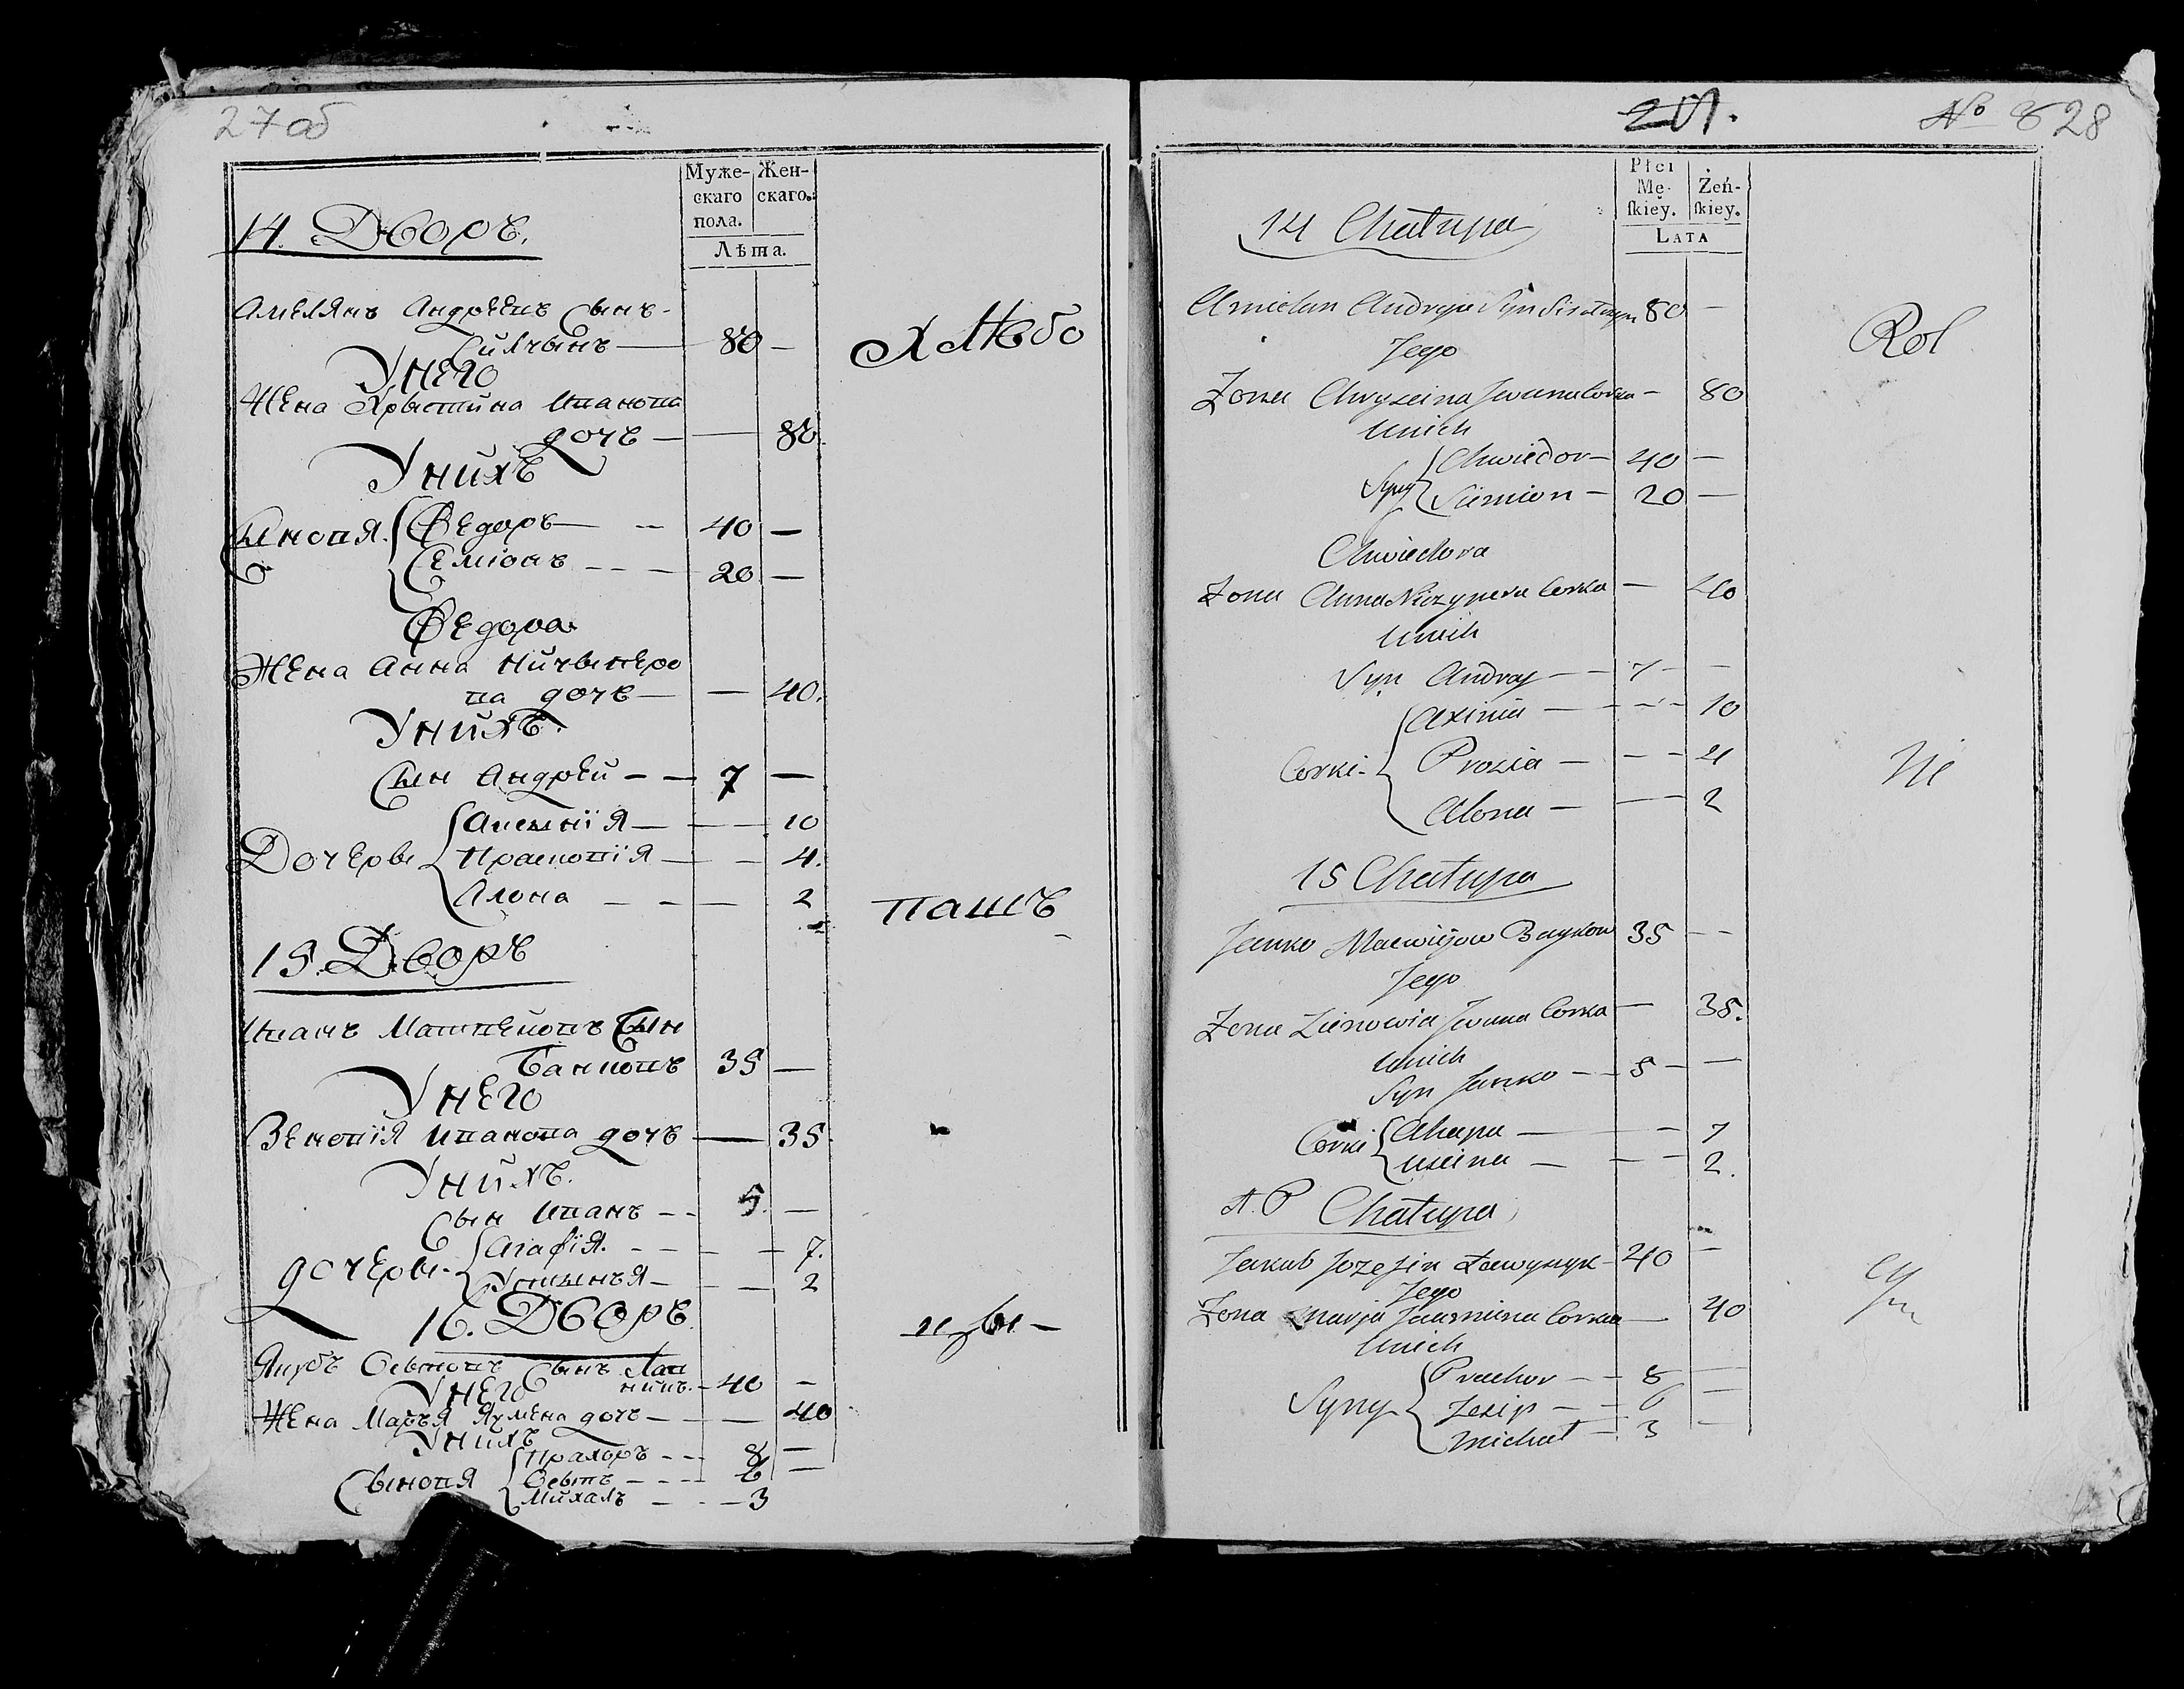 27 об
Муже-
скаго
пола.
Жен-
скаго.
Лѣта.
14. Дворъ.
Амелянъ Андреевъ Сынъ
80 —
Хлѣбо
У него
Жена Хрыстина Иванова
дочь — — 80
У нихъ
Сыновя Федоръ — 40 —
Семіонъ — 20 —
Федора
Жена Анна Ничыперо
ва дочь — — 40.
У нихъ.
Сын Андрей — 7 —
Дочеры Аксинія — — 10
Прасковія — — 4.
Алона — — 2
пашъ
15. Дворъ
Иванъ Матвеювъ Сын
Банковъ 35 —
У него
Зеновія Иванова дочь — 35
У нихъ.
Сын Иванъ — 5. —
дочеры Агафія. — — 7.
Устынья — — 2
16. Дворъ
цы —
Якубъ Осыповъ Сынъ Лав
40 —
У него
Жена Марья Яхмена дочь — — 40
У нихъ
Сыновя Прахоръ — 8 —
Осыпъ — 6 —
Михалъ — 3
201.
№ 8 28
Płci
Mę-
skiey.
Żeń-
skiey.
Lata
14 Chałupa
Amielan Andreja Syn 80 —
Rol
Jego
Żona Chryscina Jwana Corka — 80
Unich
Syny Chwiedor — 40 —
Siemion — 20 —
Chwiedora
Żona Anna Niczypera Corka — 40
Unich
Syn Andrey — 7 —
Corki Axinia — — 10
Prosia — — 4
Alona — — 2
Ni
15 Chałupa
Janko Macwiejow Baykow 35 —
Jego
Żona Zienowia Jwana Corka — 35.
Unich
Syn Janko — 5 —
Corki Ahapa — — 7
Uscina — — 2.
Chałupa
Jakub Jozefin Ławynyk 40 —
Jego
Żona Marja Jaumina Corka — 40
Unich
Syny Prachor — 8 —
Jesip — 6 —
Michał — 3 —